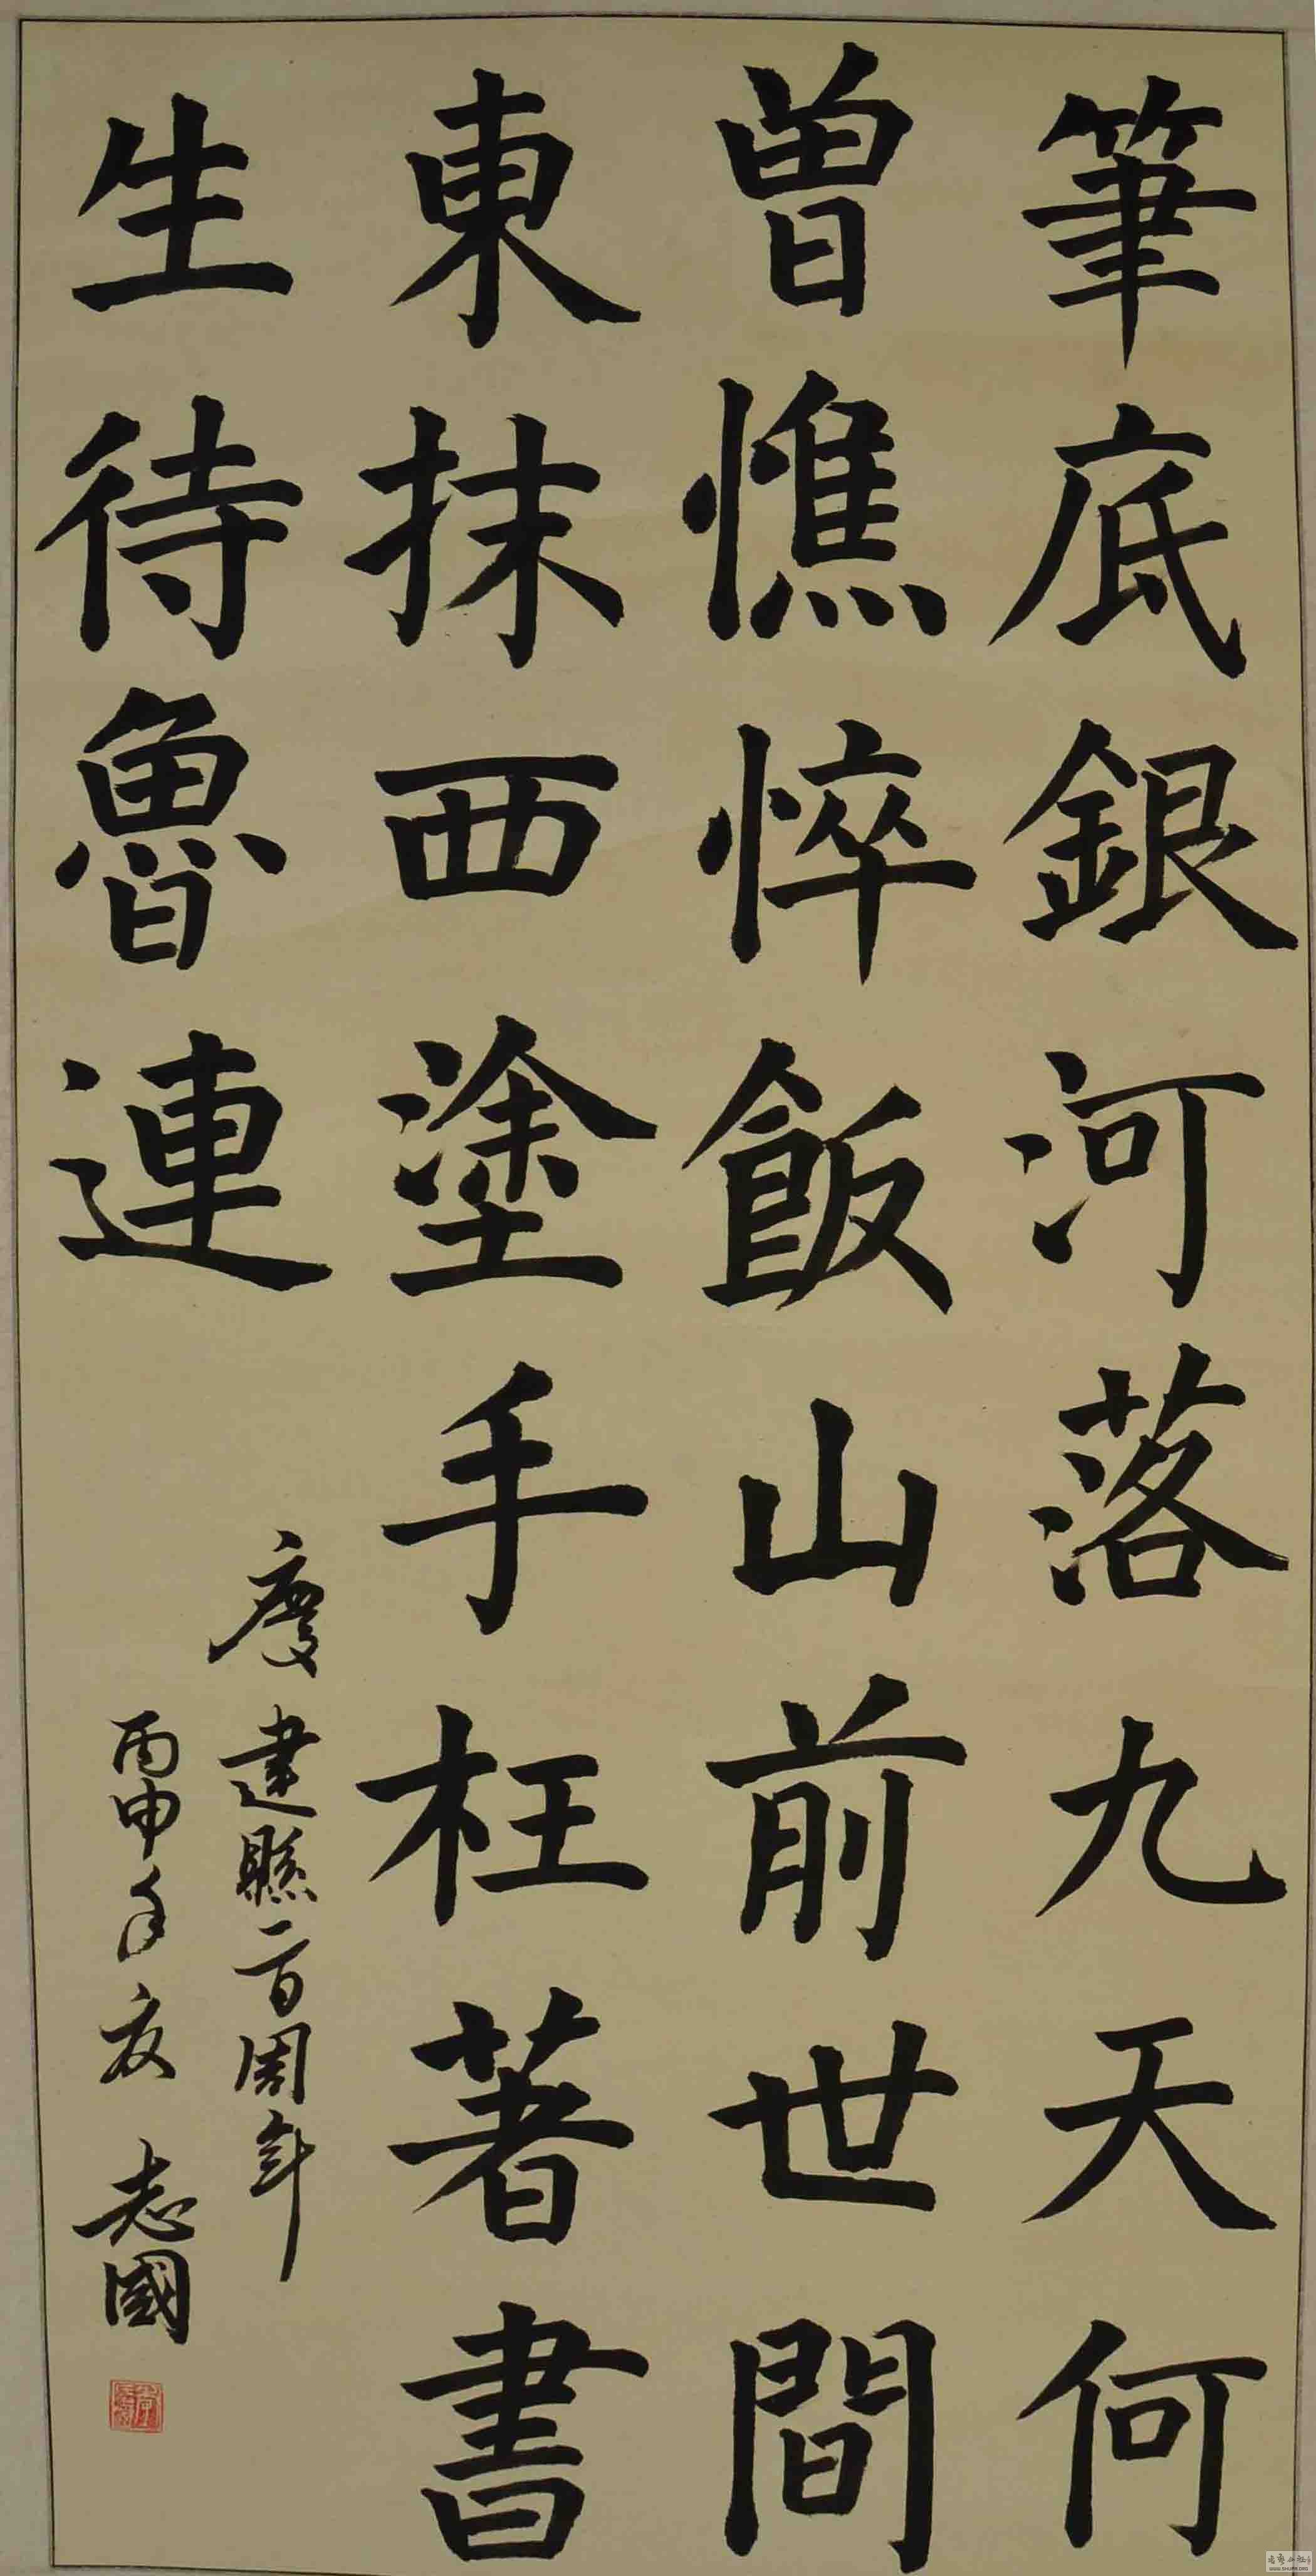 筆底銀河落九天何
曾憔悴飯山前世間
東抹西塗手枉著書
生待魯連
慶建縣一百周年
丙申年夏志國